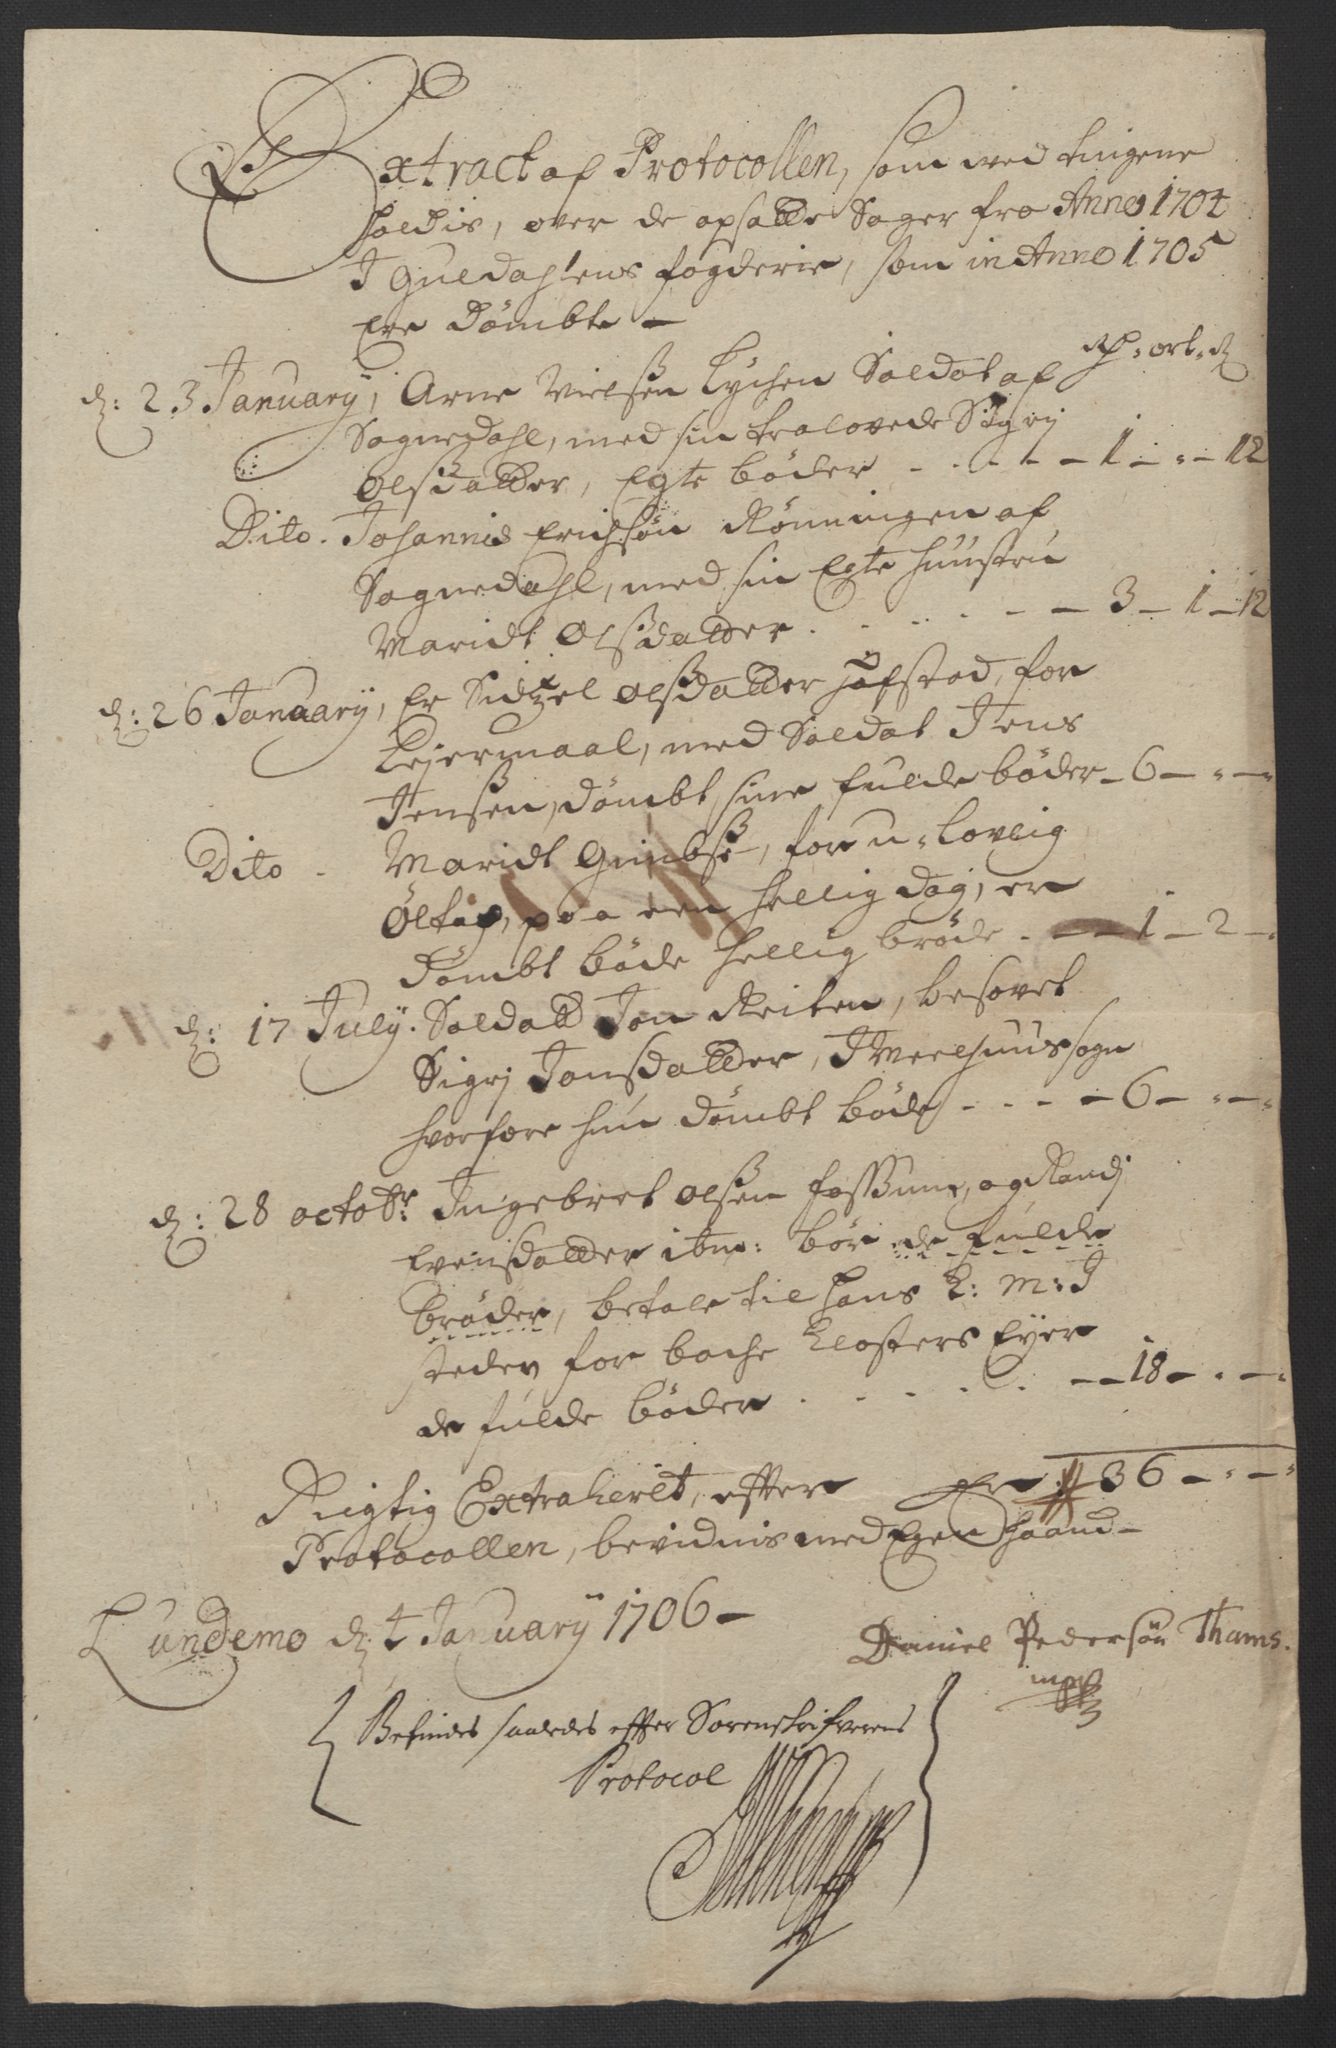 Extract af Protocollen, som ved tingene
holdis, over de opsatte Sager fra Anno 1704
I Guldahlens fogderie, som in Anno 1705
Ere Dømbte –
Rdr ort ß
d: 23 January, Arne Nielsen Lychen Soldat af
Sognedahl, med sin trolovede Sigrj
Olsdatter, Egte bøder - - - - - 1 - " - 12
Dito. Johannis Erichsøn Rønningen af
Sognedahl, med sin Egte huustru
Maridt Olsdatter. - - - - - 3 - 1 - 12
d: 26 January, Er Sidzel Olsdatter Hofstad, for
Lejermaal, med Soldat Jens
Jensen, dømbt sine fulde bøder - 6 - " - "
Dito - Maridt Grimbse, for u-lovlig
Øltap, paa een hellig dag, er
Dømbt bøde hellig brøde. - - - 1 - 2 - "
d: 17 July. Soldatt Jon Reiten, besovet
Sigrj Jonsdatter, I Meelhuus sogn
hvorfore hun dømbt bøde - - - - 6 - " - "
d: 28 octobr: Ingebret olsen fossum, og Randj
Evensdatter ibm: bør de fulde
brøder, betale til hans K: M: I
steden for bache Closters Ejer
de fulde bøder. - - - - - 18 - " - "
Rigtig Extraherit, efter Er 36 - " - "
Protocollen, bevidnis med Egen Haand -
Lundemo d: 4 January 1706 -
Daniel Pedersøn Thams.
mpp
Befindes saaledes effter Sorenskrifverens
Protocol